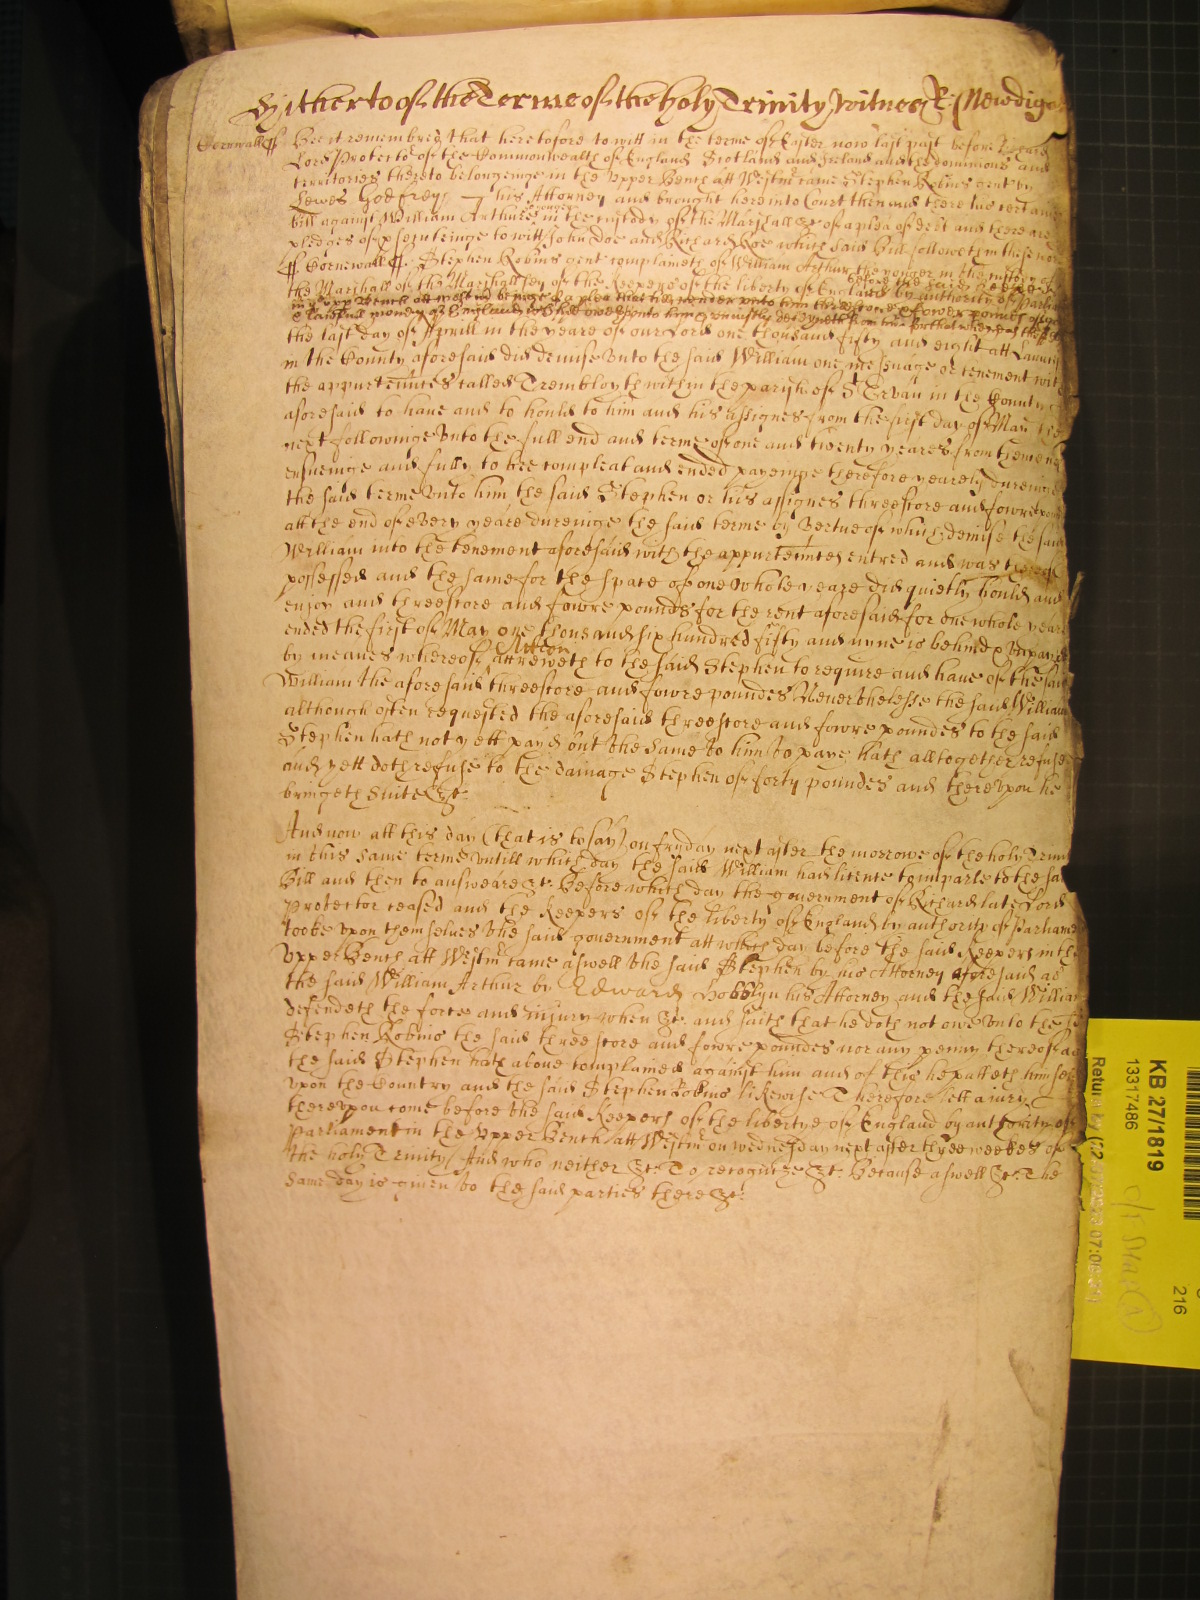 Hitherto of the Terme of the holy Trinity Witnes R: Newdiga
Cornwall ss Bee it remembred that heretofore to witt in the terme of Easter now last past before Richard
Lord Protector of the Commonwealth of England Scotland and Ireland and the dominions and
territories thereto belonginge in the Upper Bench att Westmr came Stephen Robins gent by
Lewes Godfrey his Attorney and brought here into Court then and there his certaine
bill against William Arthur the younger in the custody of the Marshall &c of a plea of debt and there are
pledges of prosecutinge to witt John Doe and Richard Roe which said Bill followeth in these wor
ss Cornewall ss Stephen Robins gent complaineth of William Arthur the yonger in the custody of
the Marshall of the Marshallsey of the Keepers of the liberty of England by authority of Parlia
before the said Keepers
in the upp Bench att Westmr beinge of a plea that hee render unto him threescore & fower pounds of
lawfull money of England which hee oweth unto him & uniustly deteyneth for that whereas the
the last day of Aprill in the yeare of our Lord one thousand fifty and eight att Launc
in the County aforesaid did demise unto the said William one messuage or tenement wit
the appurtennces called Trembloyth within the parish of St Ervan in the County
aforesaid to have and to hould to him and his assignes from the first day of May the
next followinge unto the full end and terme of one and twenty yeares from thence ne
ensueinge and fully to bee compleat and ended payeinge therefore yearely dureinge
the said terme unto him the said Stephen or his assignes threescore and fowre poun
att the end of every yeare dureinge the said terme by vertue of which demise the said
William into the tenement aforesaid with the appurtennces entred and was thereof
possessed and the same for the space of one whole yeare did quietly hould and
enjoy and threescore and fowre pounds for the rent aforesaid for one whole yeare
ended the first of May one thousand six hundred fifty and nyne is behind & unpayd
by meanes whereof Action accreweth to the said Stephen to require and have of the said
William the aforesaid threescore and fowre poundes Neverthelesse the said William
although often requested the aforesaid threescore and fowre poundes to the said
Stephen hath not yett payd but the same to him to paye hath alltogether refused
and yett doth refuse to the damage Stephen of forty poundes and thereupon he
bringeth Suite &c
And now att this day (that is to say) on fryday next after the morrowe of the holy Trini
in this same terme untill which day the said William had licence to imparle to the sa
Bill and then to answeare &c Before which day the government of Richard late Lord
Protector ceased and the Keepers of the liberty of England by authority of Parliame
tooke upon themselves the said government att which day before the said Keepers in the
Upper Bench att Westmr came aswell the said Stephen by his Attorney aforesaid as
the said William Arthur by Edward Hobblyn his Attorney and the said William
defendeth the force and injury when &c and saith that he doth not owe unto the s
Stephen Robins the said threescore and fowre poundes nor any penny thereof as
the said Stephen hath above complained against him and of this he putteth himself
upon the Country and the said Stephen Robins likewise Therefore lett a iury
thereupon come before the said Keepers of the libertye of England by authority of
Parliament in the Upper Bench att Westmr on wednesday next after three weekes of
the holy Trinity And who neither &c To recognize &c Because aswell &c The
same day is given to the said parties there &c
KB 27/1819
13317486
216